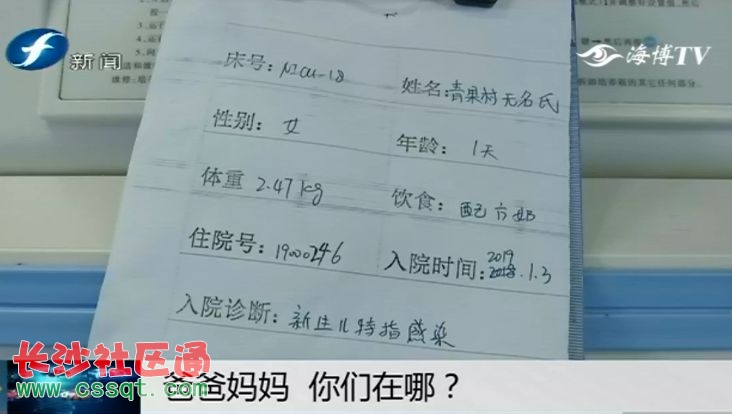 新闻
海博TV
床号：NICU-18
姓名：青果村无名氏
性别：女
年龄：1天
体重 2.47kg
饮食：配方奶
住院号：19000246
入院时间：2019.1.3
入院诊断：新生儿特指感染
爸爸妈妈 你们在哪？
长沙社区通
www.cssqt.com